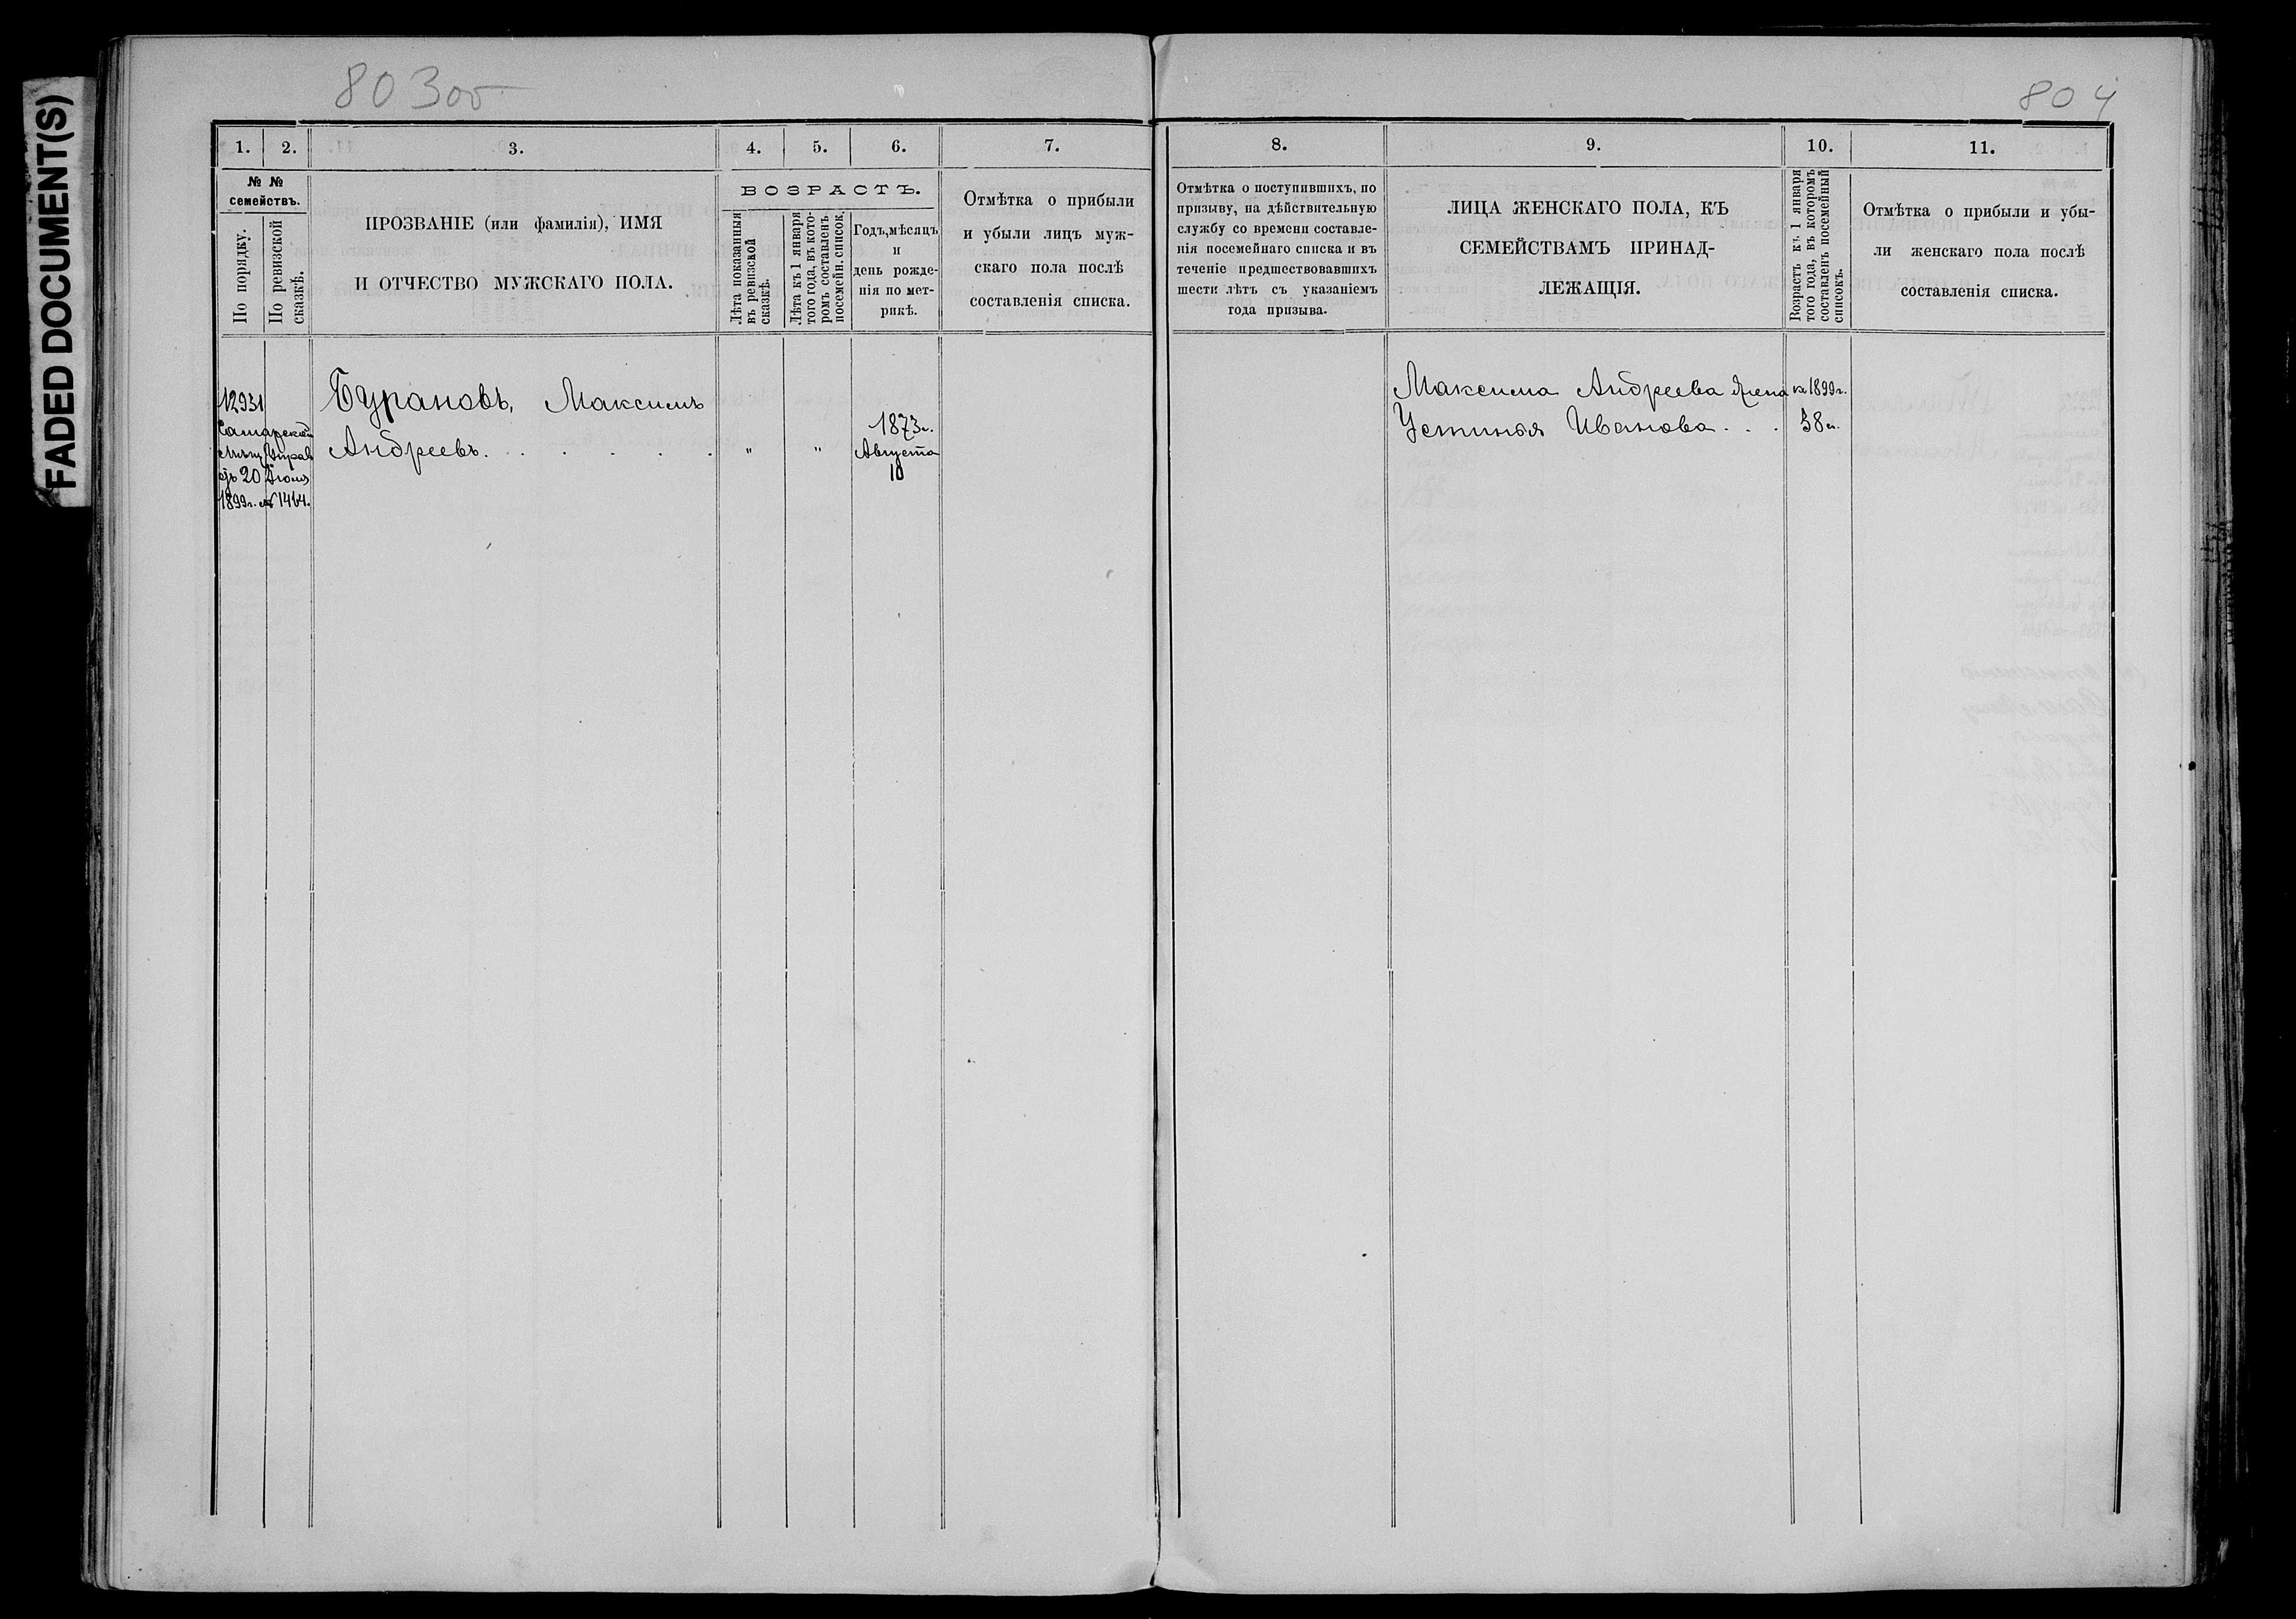 FADED DOCUMENT(S)
803 об
804
1. 2. 3. 4. 5. 6. 7.
№ №
семействъ.
По порядку.
По ревизской
сказкѣ.
ПРОЗВАНІЕ (или фамилія), ИМЯ
И ОТЧЕСТВО МУЖСКАГО ПОЛА.
ВОЗРАСТЪ.
Лѣта показанныя
въ ревизской
сказкѣ.
Лѣта къ 1 января
того года, въ кото-
ромъ составленъ
посемейн. список.
Годъ, мѣсяцъ
и
день рожде-
нія по мет-
рикѣ.
Отмѣтка о прибыли
и убыли лицъ муж-
скаго пола послѣ
составленія списка.
12931
Самарской
от 20 Июня
1899г. №1464.
Бурановъ, Максимъ
Андреевъ . . . . . .
"
"
1873г.
Августа
10
8. 9. 10. 11.
Отмѣтка о поступившихъ, по
призыву, на дѣйствительную
службу со времени составле-
нія посемейнаго списка и въ
теченіе предшествовавшихъ
шести лѣтъ съ указаніемъ
года призыва.
ЛИЦА ЖЕНСКАГО ПОЛА, КЪ
СЕМЕЙСТВАМЪ ПРИНАД-
ЛЕЖАЩІЯ.
Возрастъ къ 1 января
того года, въ которомъ
составленъ посемейный
списокъ.
Отмѣтка о прибыли и убы-
ли женскаго пола послѣ
составленія списка.
Максима Андреева жена
Устинья Иванова . . .
къ 1899г.
38л.